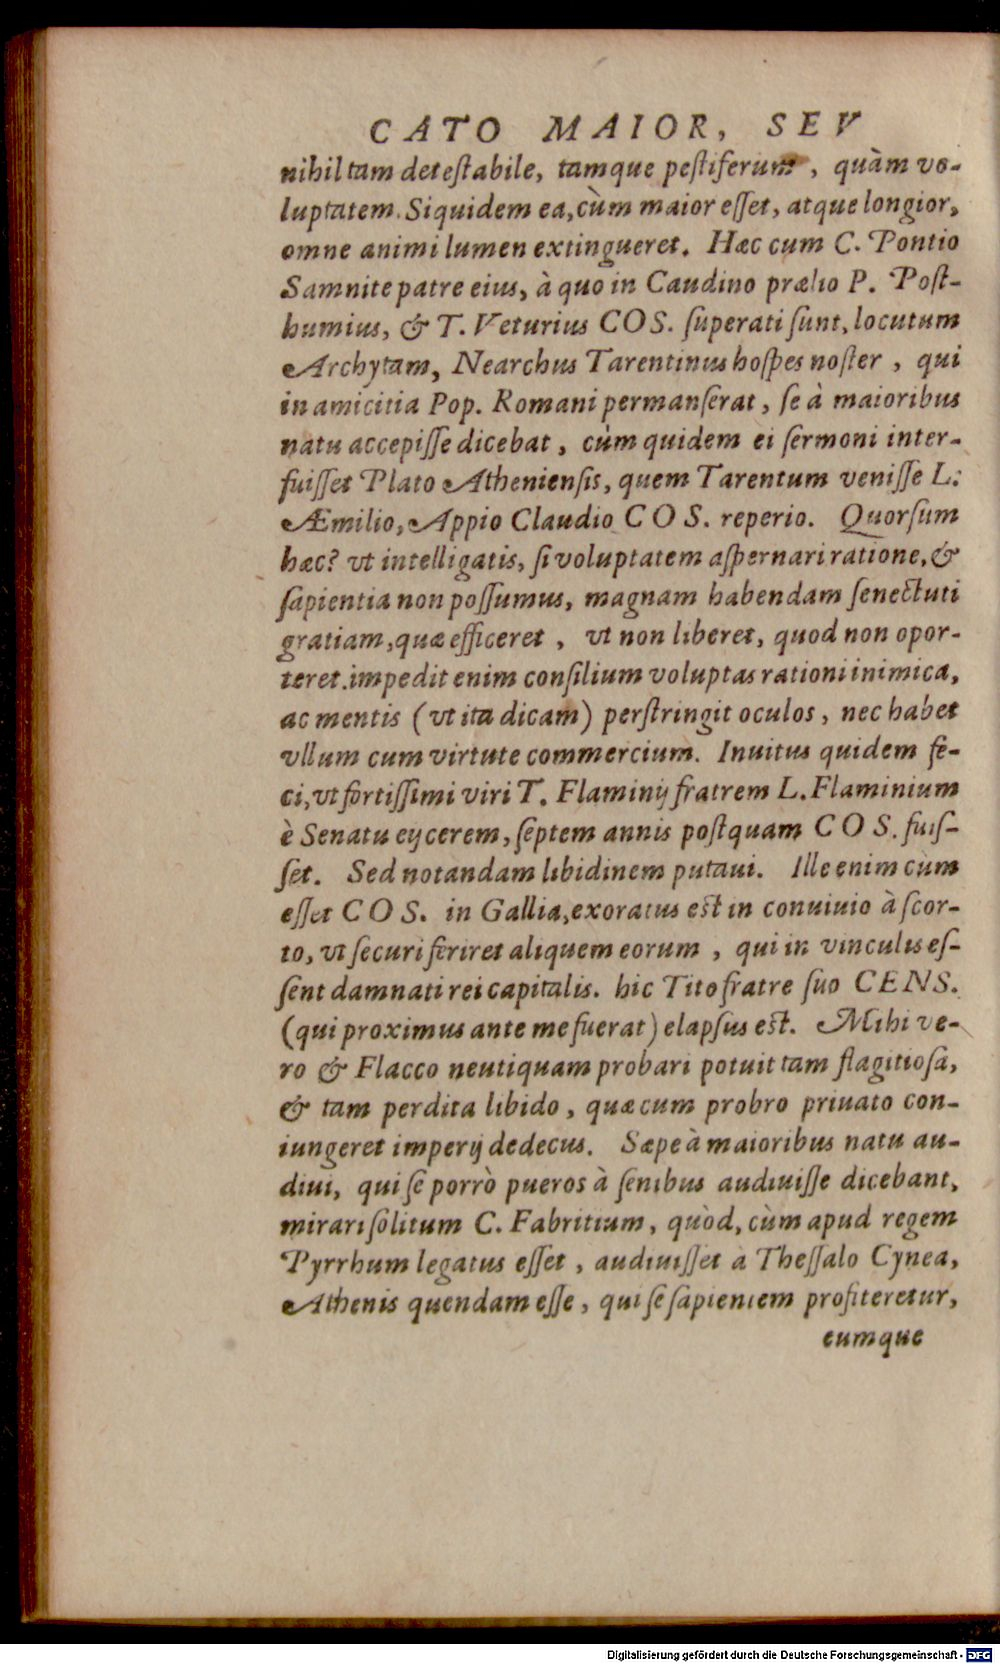 CATO MAIOR, SEV
nihil tam detestabile, tamque pestiferum, quàm vo-
luptatem. Siquidem ea, cùm maior esset, atque longior,
omne animi lumen extingueret. Hæc cum C. Pontio
Samnite patre eius, à quo in Caudino prælio P. Post-
humius, & T. Veturius COS. superati sunt, locutum
Archytam, Nearchus Tarentinus hospes noster, qui
in amicitia Pop. Romani permanserat, se à maioribus
natu accepisse dicebat, cùm quidem ei sermoni inter-
fuisset Plato Atheniensis, quem Tarentum venisse L.
Æmilio, Appio Claudio COS. reperio. Quorsum
hæc? vt intelligatis, si voluptatem aspernari ratione, &
sapientia non possumus, magnam habendam senectuti
gratiam, quæ efficeret, vt non liberet, quod non opor-
teret. impedit enim consilium voluptas rationi inimica,
ac mentis (vt ita dicam) perstringit oculos, nec habet
vllum cum virtute commercium. Inuitus quidem fe-
ci, vt fortissimi viri T. Flaminij fratrem L. Flaminium
è Senatu eijcerem, septem annis postquam COS. fuis-
set. Sed notandam libidinem putaui. Ille enim cùm
esset COS. in Gallia, exoratus est in conuiuio à scor-
to, vt securi feriret aliquem eorum, qui in vinculis es-
sent damnati rei capitalis. hic Tito fratre suo CENS.
(qui proximus ante me fuerat) elapsus est. Mihi ve-
ro & Flacco neutiquam probari potuit tam flagitiosa,
& tam perdita libido, quæ cum probro priuato con-
iungeret imperij dedecus. Sæpe à maioribus natu au-
diui, qui se porrò pueros à senibus audiuisse dicebant,
mirari solitum C. Fabritium, quòd, cùm apud regem
Pyrrhum legatus esset, audiuisset a Thessalo Cynea,
Athenis quendam esse, qui se sapientem profiteretur,
eumque
Digitalisierung gefördert durch die Deutsche Forschungsgemeinschaft - DFG